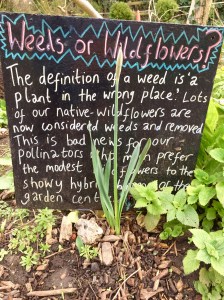 Weeds or Wildflowers?
The definition of a weed is a
plant in the wrong place! Lots
of our native wildflowers are
now considered weeds and removed
This is bad news for our
Pollinators prefer
the modest flowers to the
showy hybrid of the
garden cent